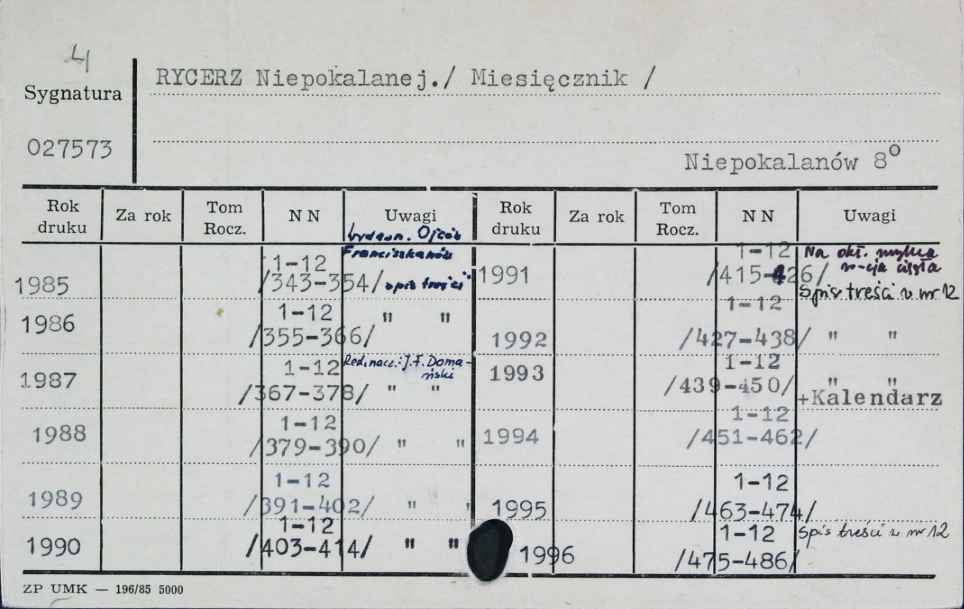 4
RYCERZ Niepokalanej./ Miesięcznik /
Sygnatura
027573
Niepokalanów 8°
Rok druku Za rok Tom Rocz. N N Uwagi Rok druku Za rok Tom Rocz. N N Uwagi
Wydawn. Ojców
Franciszkanów
1985 1-12 /343-354/ spis treści
1986 1-12 /355-366/ " "
1987 1-12 /367-378/ Red.nacz.: J.F. Domański " "
1988 1-12 /379-390/ " "
1989 1-12 /391-402/ " "
1990 1-12 /403-414/ " "
1991 1-12 /415-426/ Na okł. mylna
Spis treści w nr 12
1992 1-12 /427-438/ " "
1993 1-12 /439-450/ " "
+Kalendarz
1994 1-12 /451-462/
1995 1-12 /463-474/
1996 1-12 /475-486/ Spis treści w nr 12
ZP UMK — 196/85 5000